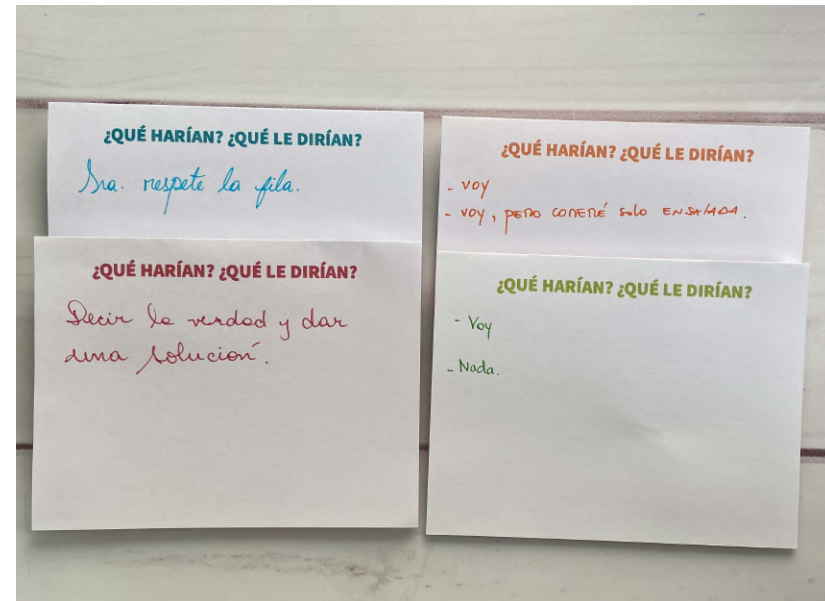 ¿QUÉ HARÍAN? ¿QUÉ LE DIRÍAN?
Sra. respete la fila.
¿QUÉ HARÍAN? ¿QUÉ LE DIRÍAN?
Decir la verdad y dar
una solución.
¿QUÉ HARÍAN? ¿QUÉ LE DIRÍAN?
- VOY
- VOY, PERO COMERÉ SOLO ENSALADA.
¿QUÉ HARÍAN? ¿QUÉ LE DIRÍAN?
- Voy
- Nada.